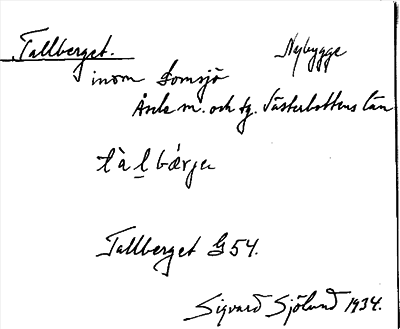 Tallberget. Nybygge
inom Lomsjö
Åsele sn. och tg. Västerbottens län
tàl̲bǽrjeṭ
Tallberget G 54.
Sigvard Sjölund 1934.